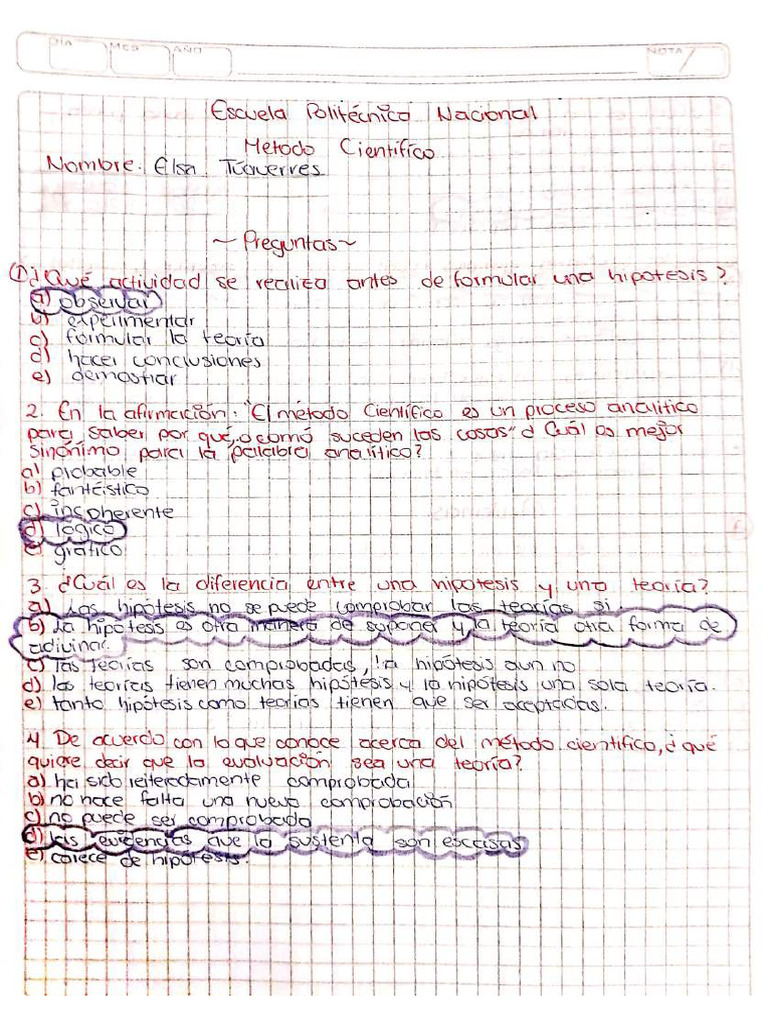 DIA MES AÑO NOTA
Escuela Politécnico Nacional
Metodo Científico
Nombre: Elsa Túquerres
~ Preguntas ~
① ¿Qué actividad se realiza antes de formular una hipotesis?
a) observar
b) experimentar
c) formular la teoría
d) hacer conclusiones
e) demostrar
2. En la afirmación: "El método Científico es un proceso analítico
para saber por qué o comó suceden las cosas" ¿Cuál es mejor
sinónimo para la palabra analítico?
a) probable
b) fantástico
c) incoherente
d) logico
e) gráfico
3. ¿Cuál es la diferencia entre una hipotesis y una teoría?
a) Las hipótesis no se puede comprobar las teorías si.
b) La hipotesis es otra manera de suponer y la teoría otra forma de
adivinar.
c) las teorías son comprobadas, la hipótesis aun no
d) las teorías tienen muchas hipótesis y la hipótesis una sola teoría.
e) tanto hipótesis como teorias tienen que ser aceptadas.
4. De acuerdo con lo que conoce acerca del método cientifico, ¿qué
quiere decir que la evaluación sea una teoría?
a) ha sido reiteradamente comprobada
b) no hace falta una nueva comprobación
c) no puede ser comprobada
d) las evidencias que la sustenta son escasas
e) carece de hipótesis.